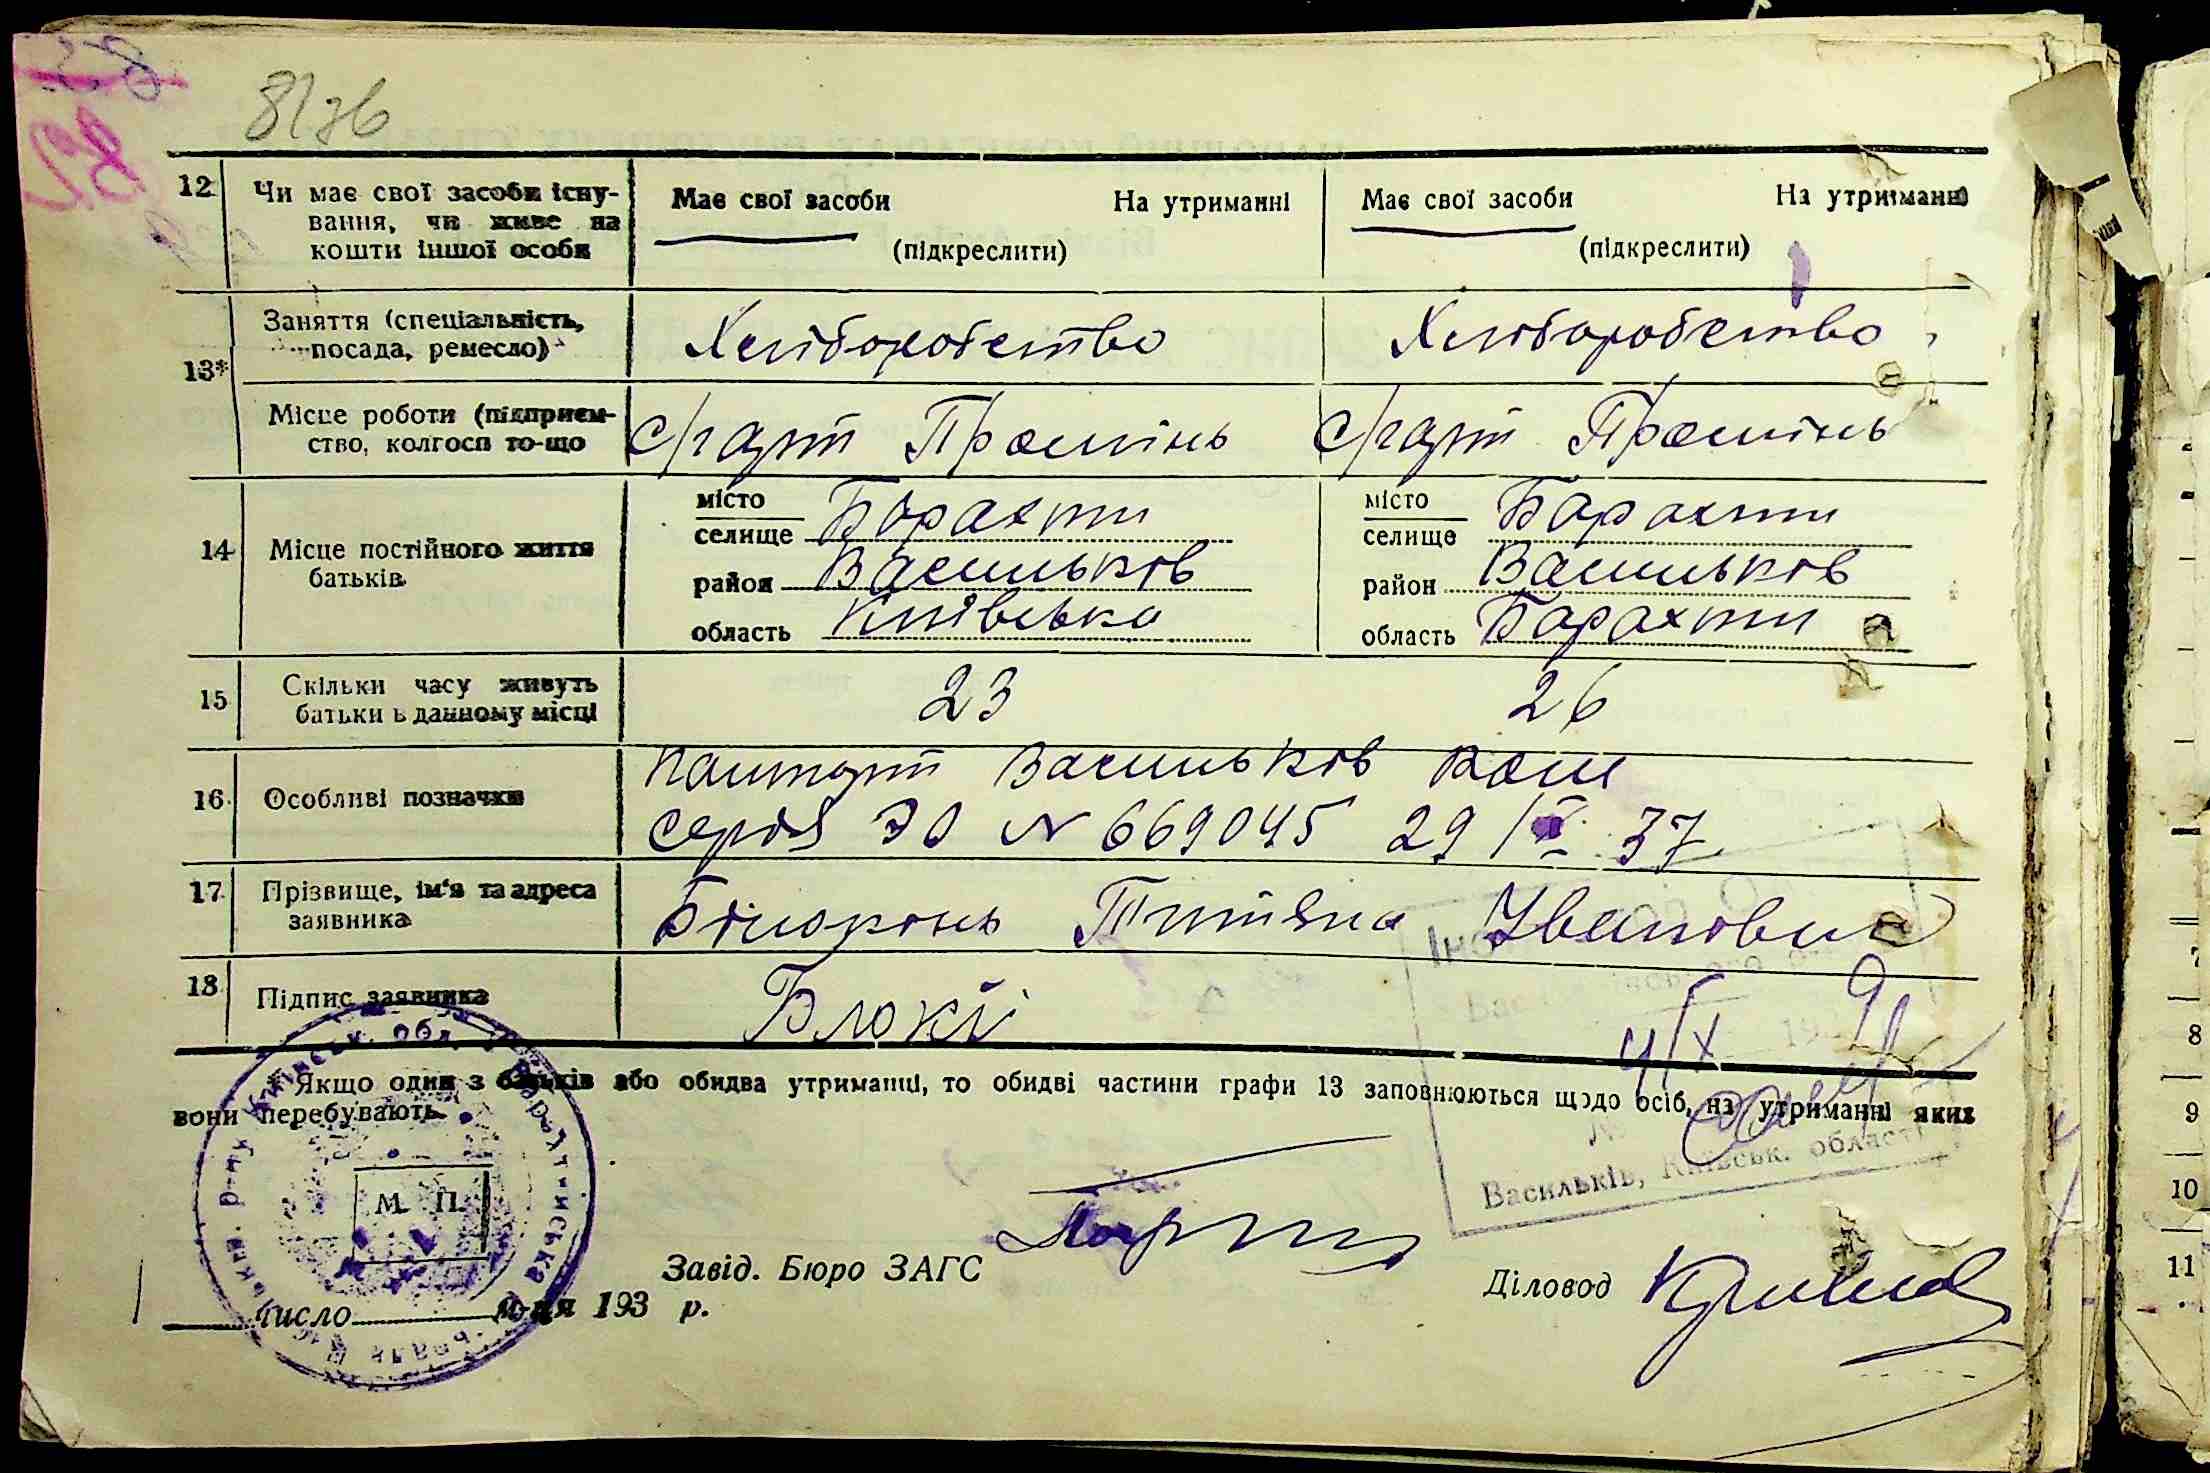 8176
12 Чи має свої засоби існу- Має свої засоби На утриманні Має свої засоби На утриманні
вання, чи живе на
кошти іншої особи (підкреслити) (підкреслити)
Заняття (спеціальність, Хліборобство Хліборобство
посада, ремесло)
13*
Місце роботи (підприєм- с/г арт Промінь с/г арт Промінь
ство, колгосп то-що
місто місто
селище Барахти селище Барахти
14 Місце постійного життя
батьків
район Васильков район Васильков
область Київська область Барахти
15 Скільки часу живуть 23 26
батьки в данному місці
16 Особливі позначки Пашпорт Васильков
серія ЭО N 669045 29/ 37
17 Прізвище, ім'я та адреса Ивановна
заявника
18 Підпис заявника
* Якщо один з батьків або обидва утриманці, то обидві частини графи 13 заповнюються щодо осіб, на утриманні яких
вони перебувають.
Васильків, Київськ. області
М. П.
Завід. Бюро ЗАГС
Діловод
число м-ця 193 р.
8
9
10
11